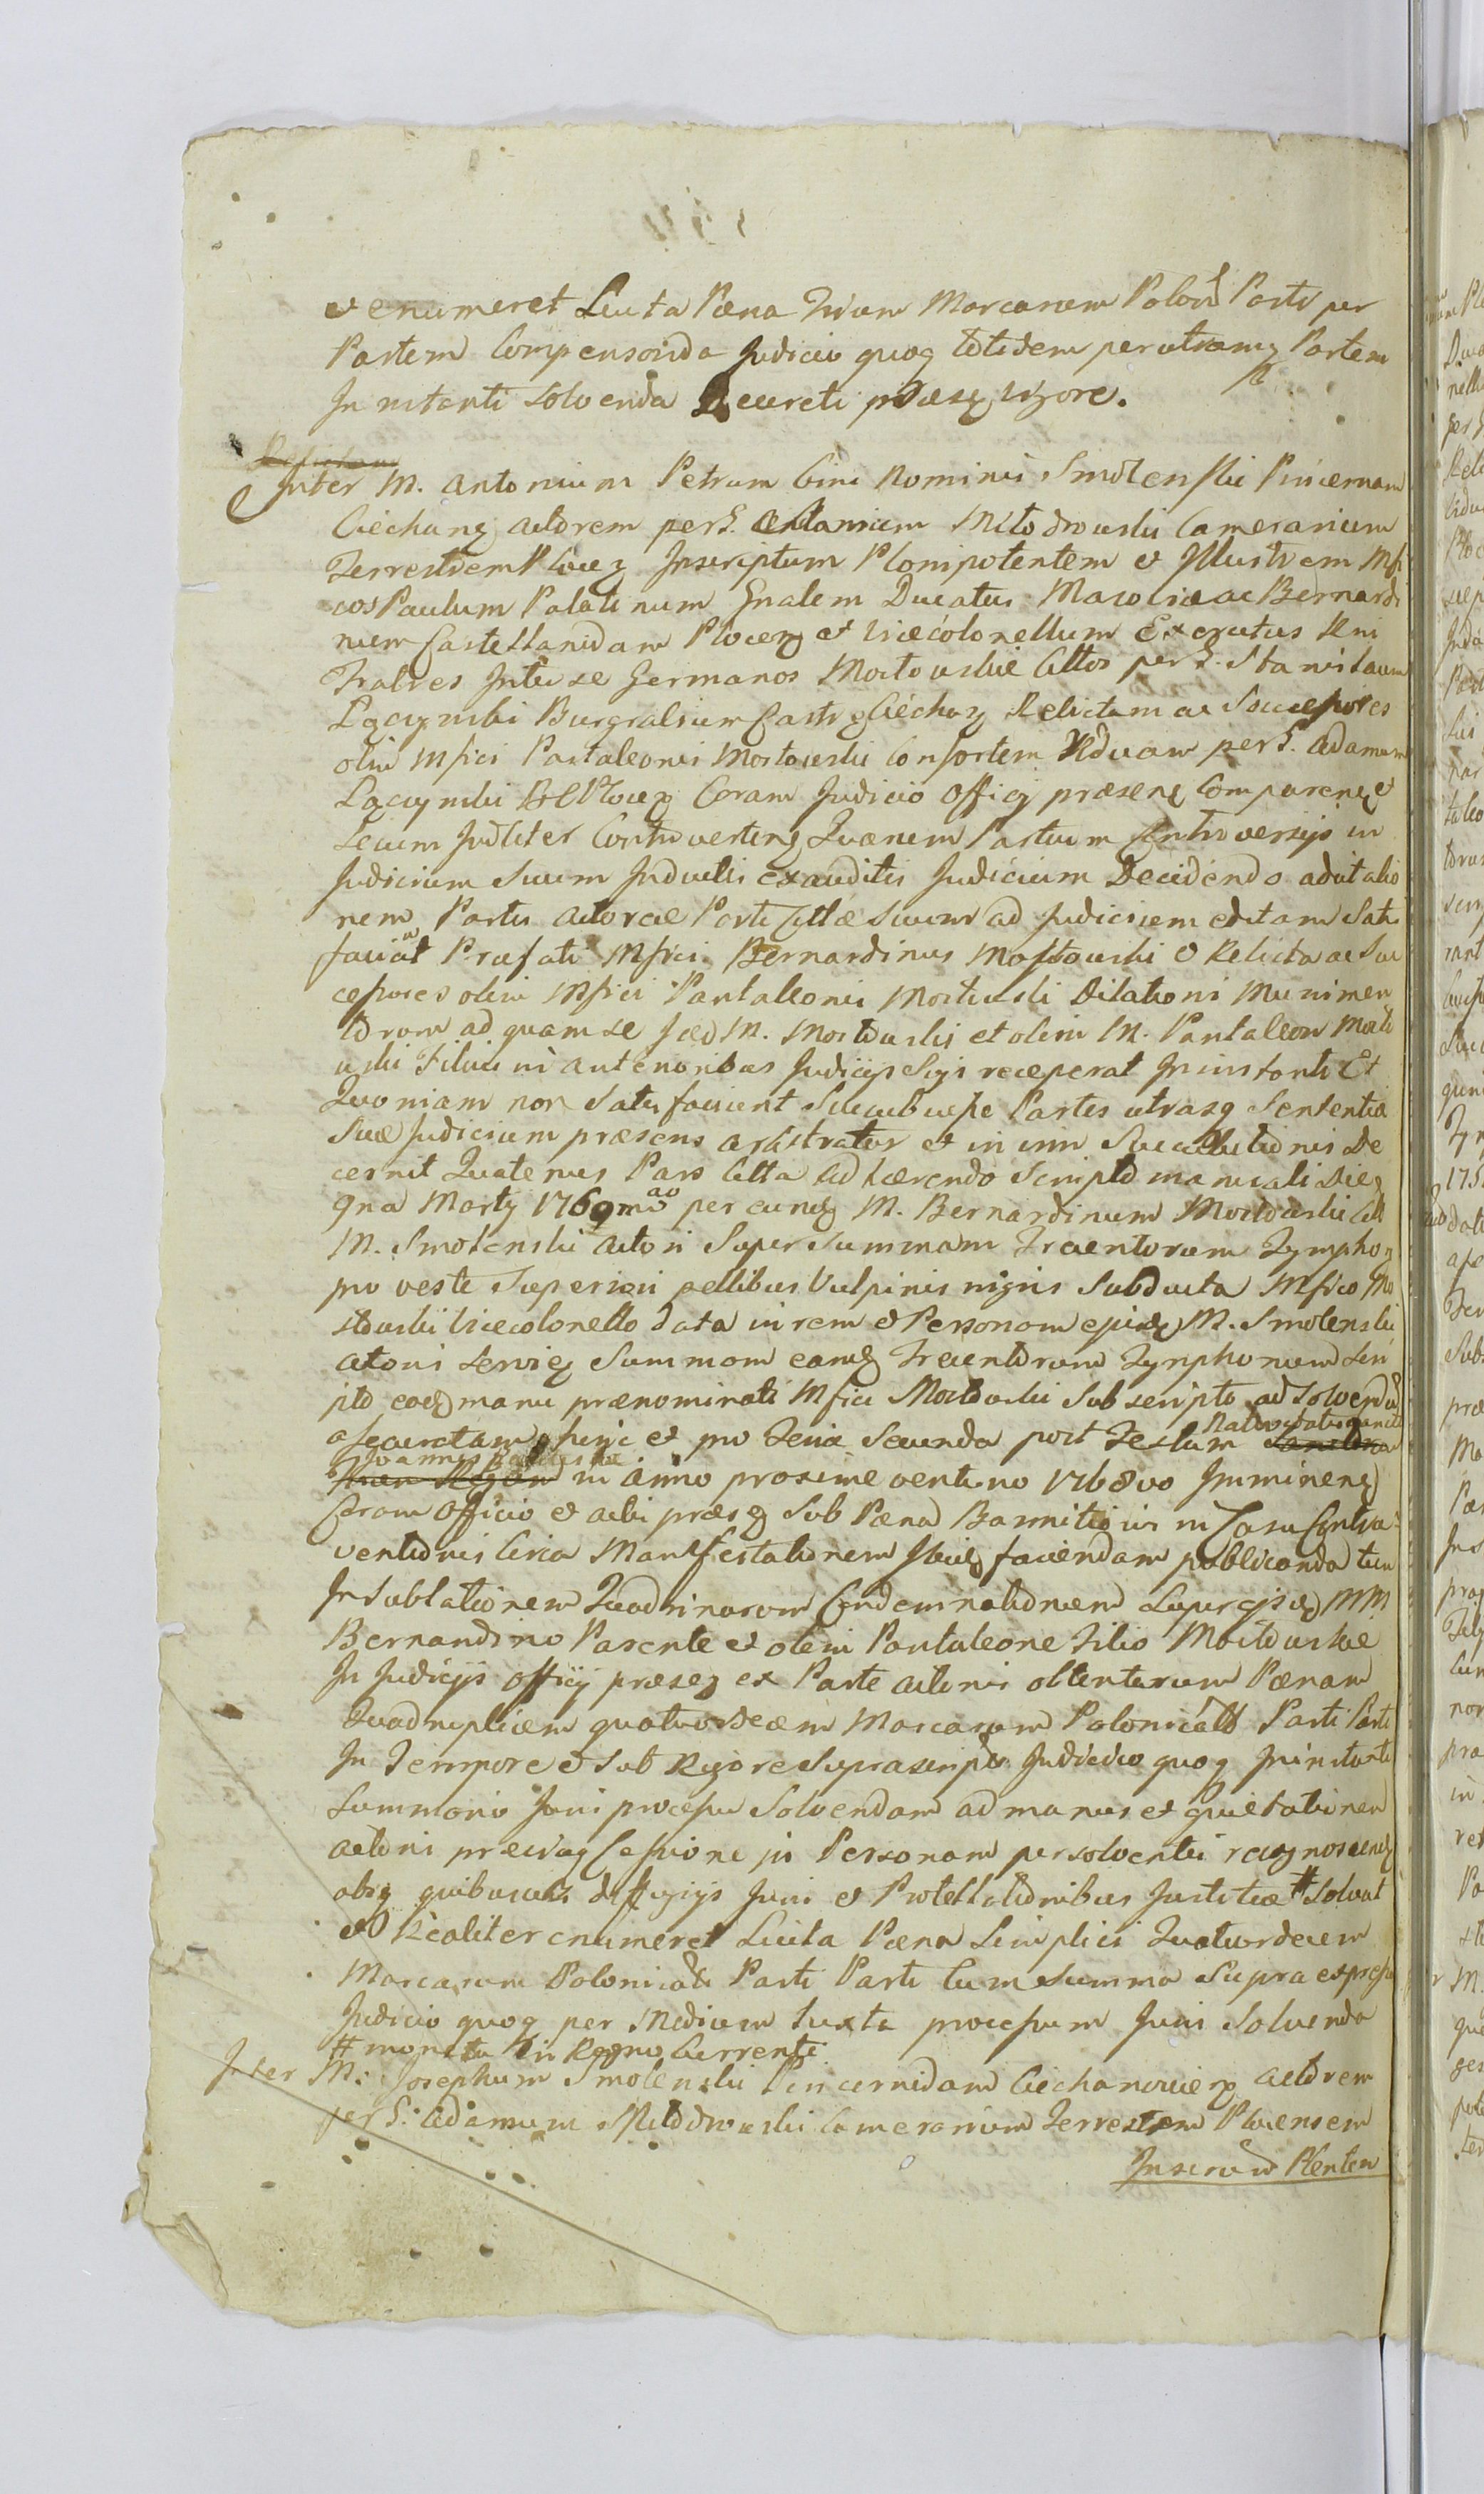 et enumeret Luita Pæna Trium Marcarum Polon Parti per
Partem Compensanda Judicio quoq totidem per utramq Partem
In instanti solvenda Decreti præsq vigore.
Inter M. Antonium Petrum bini Nominis Smolenski Pincernam
Ciechanq Actorem per G. Adamum Młodzowski Camerarium
Terrestrem Plocq Inscriptum Plenipotentem et Illustrem Mfi
cos Paulum Palatinum Gnalem Ducatus Masoviæ ac Bernardi
num Castellanidam Plocq et Vicecolonellum Exercitus Rni
Fratres Inter se Germanos Mostowskie Cittos per G. Stanislaum
Łączynski Burgrabium Castr Ciechaq Relictam ac Successores
olim Mfici Pantaleonis Mostowski Consortem Viduam per G. Adamum
Łączynski Plocq Coram Judicio Officij præsenq Comparenq et
secum Judliter Controverteng Quarum Partium Controversijs in
Judicium suum Inductis exauditis Judicium Decidendo ad
nem Partis Actoreæ Parti Cittæ suum ad Judicium editam Satis
faciat Præfati Mfici Bernardinus Mostowski et Relicta ac Suc
cessores olim Mfici Pantaleonis Mostowski Dilationi Munimen
torum ad quam se M. Mostowski et olim M. Pantaleon Mosto
wski Filius in anterioribus Judicijs receperat In instanti Et
Quoniam non Satisfaciunt Succubuisse Partes utrasq Sententia
Sua Judicium præsens arbitratur et in vim Succubitionis De
cernit Quatenus Pars Citta adhærendo Scripto manuali Dieq
9na Martij 1760mo per eunq M. Bernardinum Mostowski
M. Smolenski Actori Super Summam Trecentorum Tymphoq
pro veste Superiori pellibus Vulpinis nigris Subducta Mfico Mo
stowski Vicecolonello data in rem et Personam ejusq M. Smolenski
Actoris Summam eamq Trecentorum Tymphonum Scri
pto eoq manu prænominati Mfici Mostowski Subscripto ad solvend
assecuratam hinc et pro Feria Secunda post Festum Nativitatis Sancti
Joannis Baptistæ in anno proxime venturo 1768vo Imminenq
Coram Officio et actis præsq Sub Pæna Bannitionis in Casu Contra
ventionis Circa Manifestationem faciendam publicanda tum
In Sublationem Quadrinarum Condemnationum Super ijsq MM
Bernardino Parente et olim Pantaleone Filio Mostowskie
In Judicijs Officij præsq ex Parte Actoris obtentarum Pænam
Quadruplicem quatuordecem Marcarum Polonicals Parti Parti
In Tempore et Sub Rigore Suprascripto Judicio quoq In instanti
Summario Juris processu Solvendam ad manus et quietationem
Actoris præviaq Cessione in Personam persolventis recognoscenq
absq quibusvis diffugijs Juris et Protestationibus Justitiæ # Solvat
et Realiter enumeret Luita Pæna Simplici Quatuordecem
Marcarum Polonicals Parti Parti Cum Summa Supra expressa
Judicio quoq per Medium Juxta processum Juris Solvenda
# moneta In Regno Currenti
Inter M. Josephum Smolenski Pincernidam Ciechanovieq Actorem
per G. Adamum Młodzowski Camerarium Terrestrem Plocensem